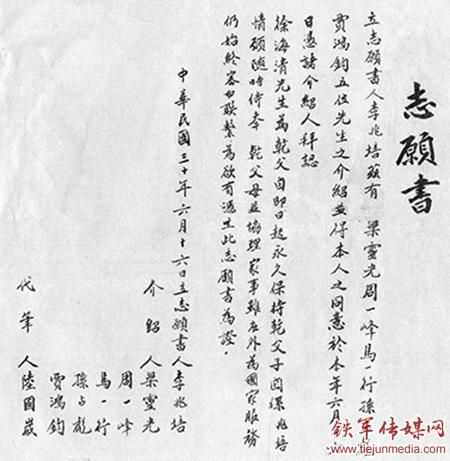 志願書
立志願書人李兆培茲有 梁靈光周一峰馬一行孫
賈鴻鈞五位先生之介紹並得本人之同意於本年六月
日憑諸介紹人拜認
徐海清先生為乾父自即日起永久保持乾父子關係兆培
情願隨時侍奉 乾父母並協理家事雖在外為國家服務
仍始終密切聯繫為欲有憑立此志願書為證。
中華民國三十年六月十六日立志願書人李兆培
介紹人梁靈光
周一峰
馬一行
孫占彪
賈鴻鈞
代筆人陸國
铁军传媒网
www.tiejunmedia.com